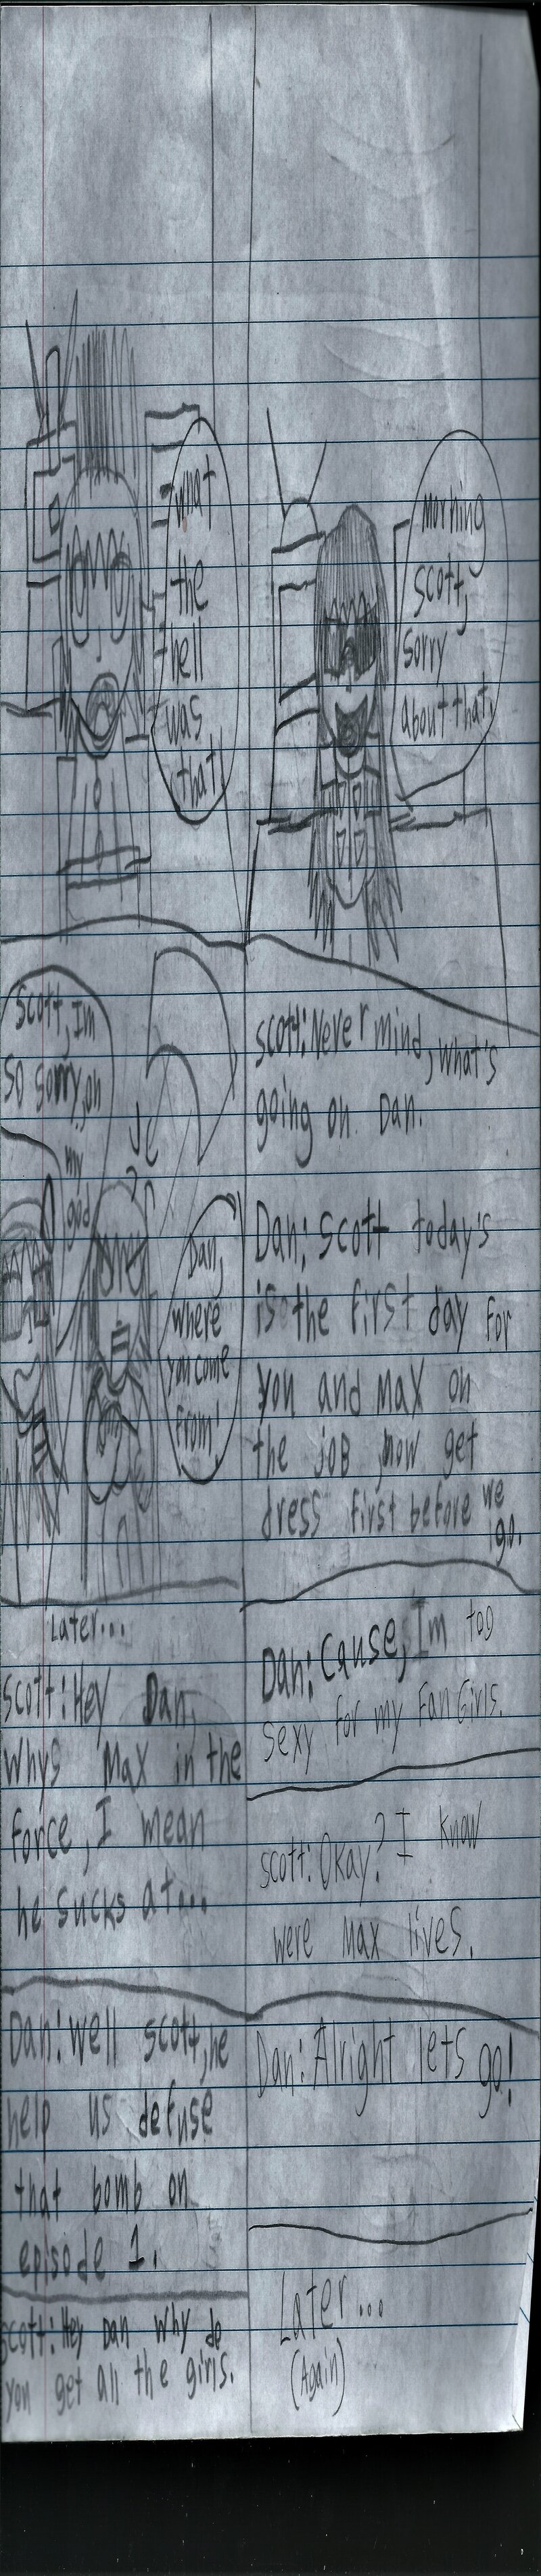 what
the
hell
was
that!
Morning
Scott,
sorry
about that.
Scott, Im
so sorry, oh
my
god
Dan,
where
you come
from!
Scott: Never mind, what's
going on. Dan.
Dan: Scott today's
is the first day for
you and Max on
the job, now get
dress first before we
go.
Later...
Scott: Hey Dan,
whys Max in the
force, I mean
he sucks at...
Dan: well scott, he
help us defuse
that bomb on
episode 1.
Scott: Hey Dan why do
you get all the girls.
Dan: Cause, Im too
sexy for my Fan Girls.
Scott: Okay? I know
were Max lives.
Dan: Alright lets go!
Later...
(Again)